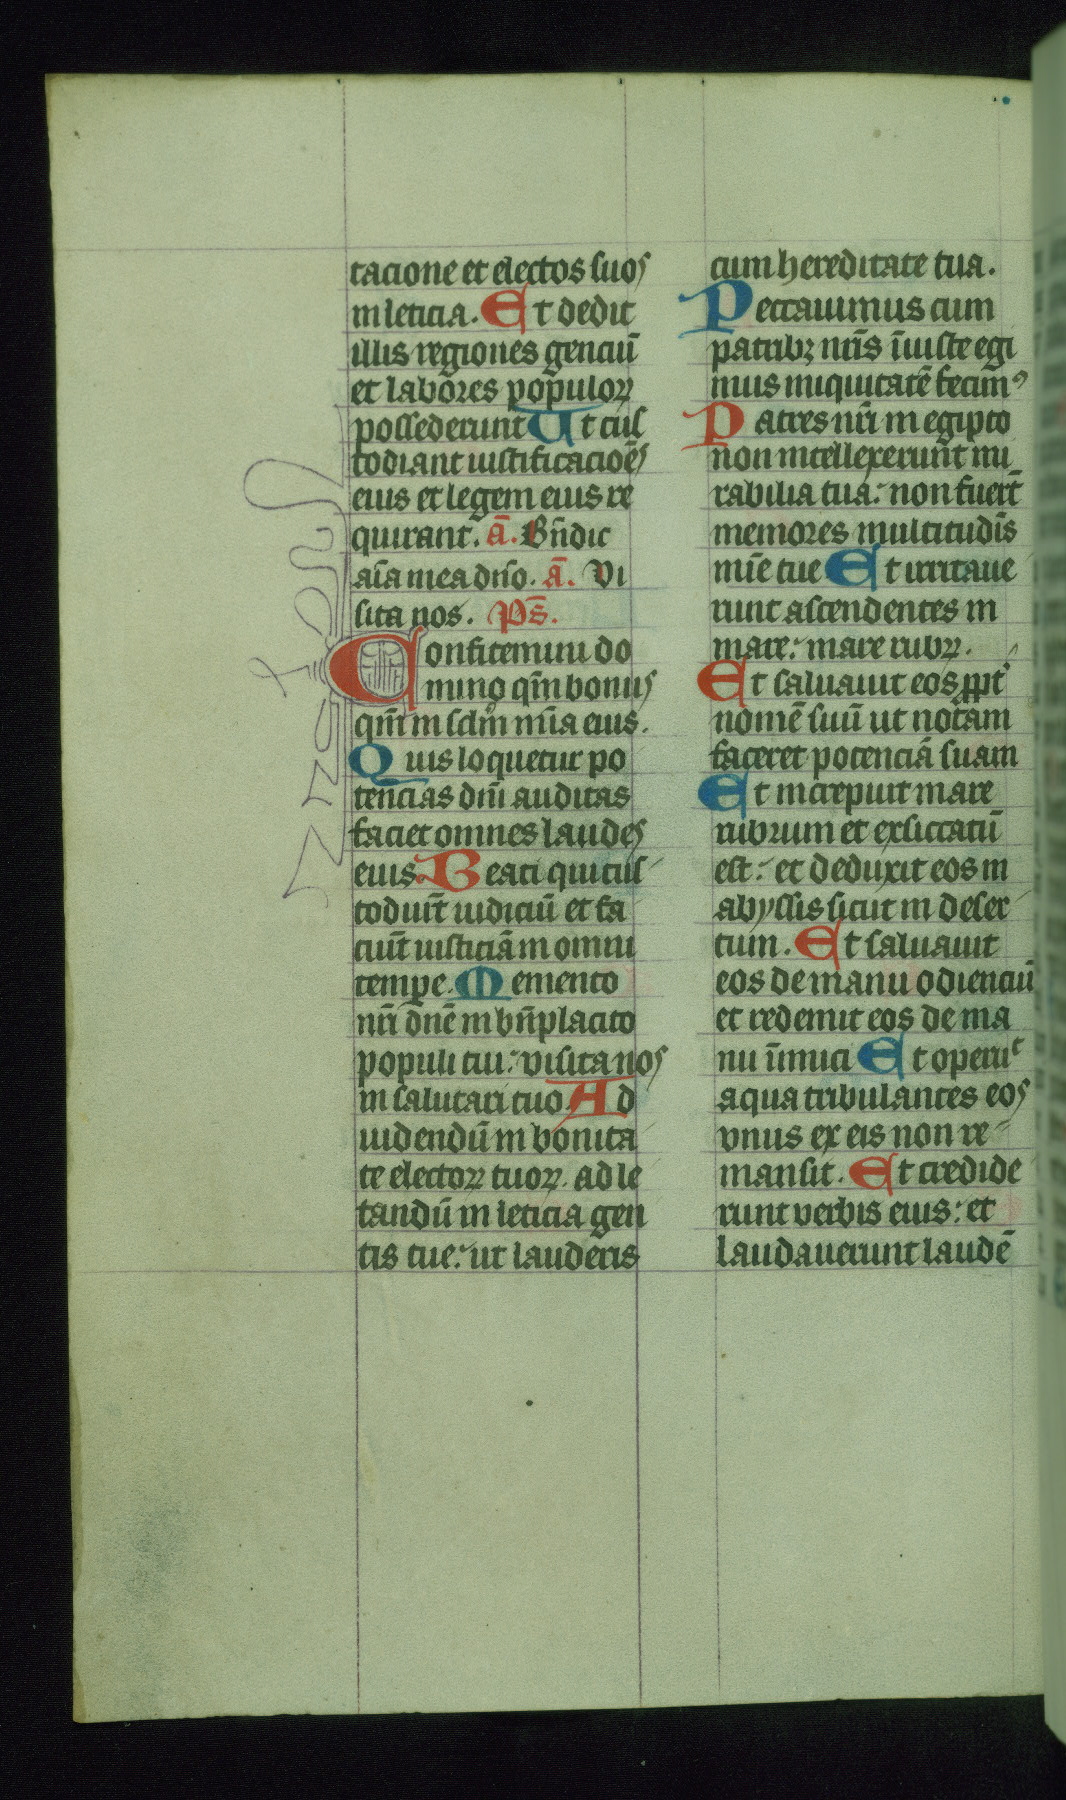 tacione et electos suos
in leticia. Et dedit
illis regiones genciū
et labores populoꝝ
possederunt Ut cus
todiant iustificacioēs
eius et legem eius re
quirant. ā. Bn̄dic
aīa mea dn̄o. ā. Vi
sita nos. Ps̄.
Confitemini do
mino qm̄ bonus
qm̄ in sclm̄ mīa eius.
Quis loquetur po
tencias dn̄i auditas
faciet omnes laudes
eius. Beati qui cus
todiūt iudiciū et fa
ciūt iusticiā in omni
tempe. Memento
nr̄i dn̄e in bn̄placito
populi tui: visita nos
in salutari tuo. Ad
uidendū in bonita
te electoꝝ tuoꝝ. ad le
tandū in leticia gen
tis tue: ut lauderis
cum hereditate tua.
Peccauimus cum
patribꝫ nr̄is īiuste egi
mus iniquitatē fecimꝰ
Patres nr̄i in egipto
non intellexerunt mi
rabilia tua: non fuert̄
memores multitudīs
mīe tue Et irritaue
runt ascendentes in
mare: mare rubꝝ.
Et saluauit eos ꝓpt̓
nomē suū ut notam
faceret potenciā suam
Et increpuit mare
rubrum et exsiccatū
est: et deduxit eos in
abyssis sicut in deser
tum. Et saluauit
eos de manu odienciū
et redemit eos de ma
nu īimici Et operuit
aqua tribulantes eos
vnus ex eis non re
mansit. Et credide
runt verbis eius: et
laudauerunt laudē